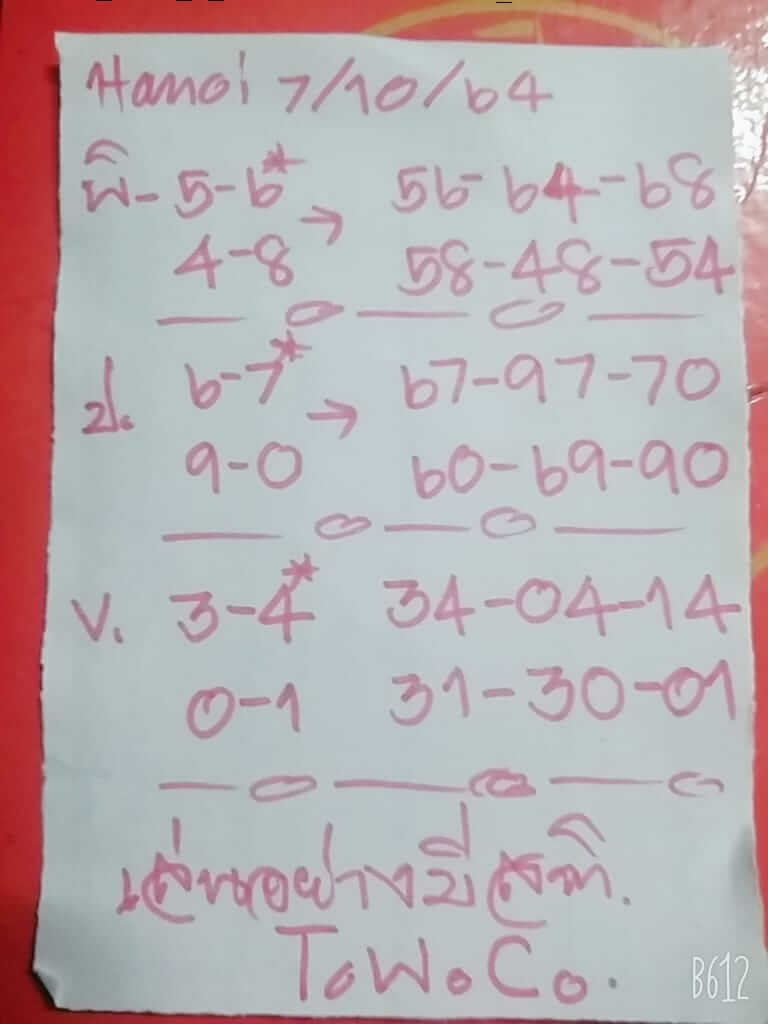 Hanoi 7/10/64
พิ- 5-6* → 56-64-68
4-8 58-48-54
ป. 6-7* → 67-97-70
9-0 60-69-90
V. 3-4* 34-04-14
0-1 31-30-01
เล่นอย่างมีสติ.
ToWoCo.
B612